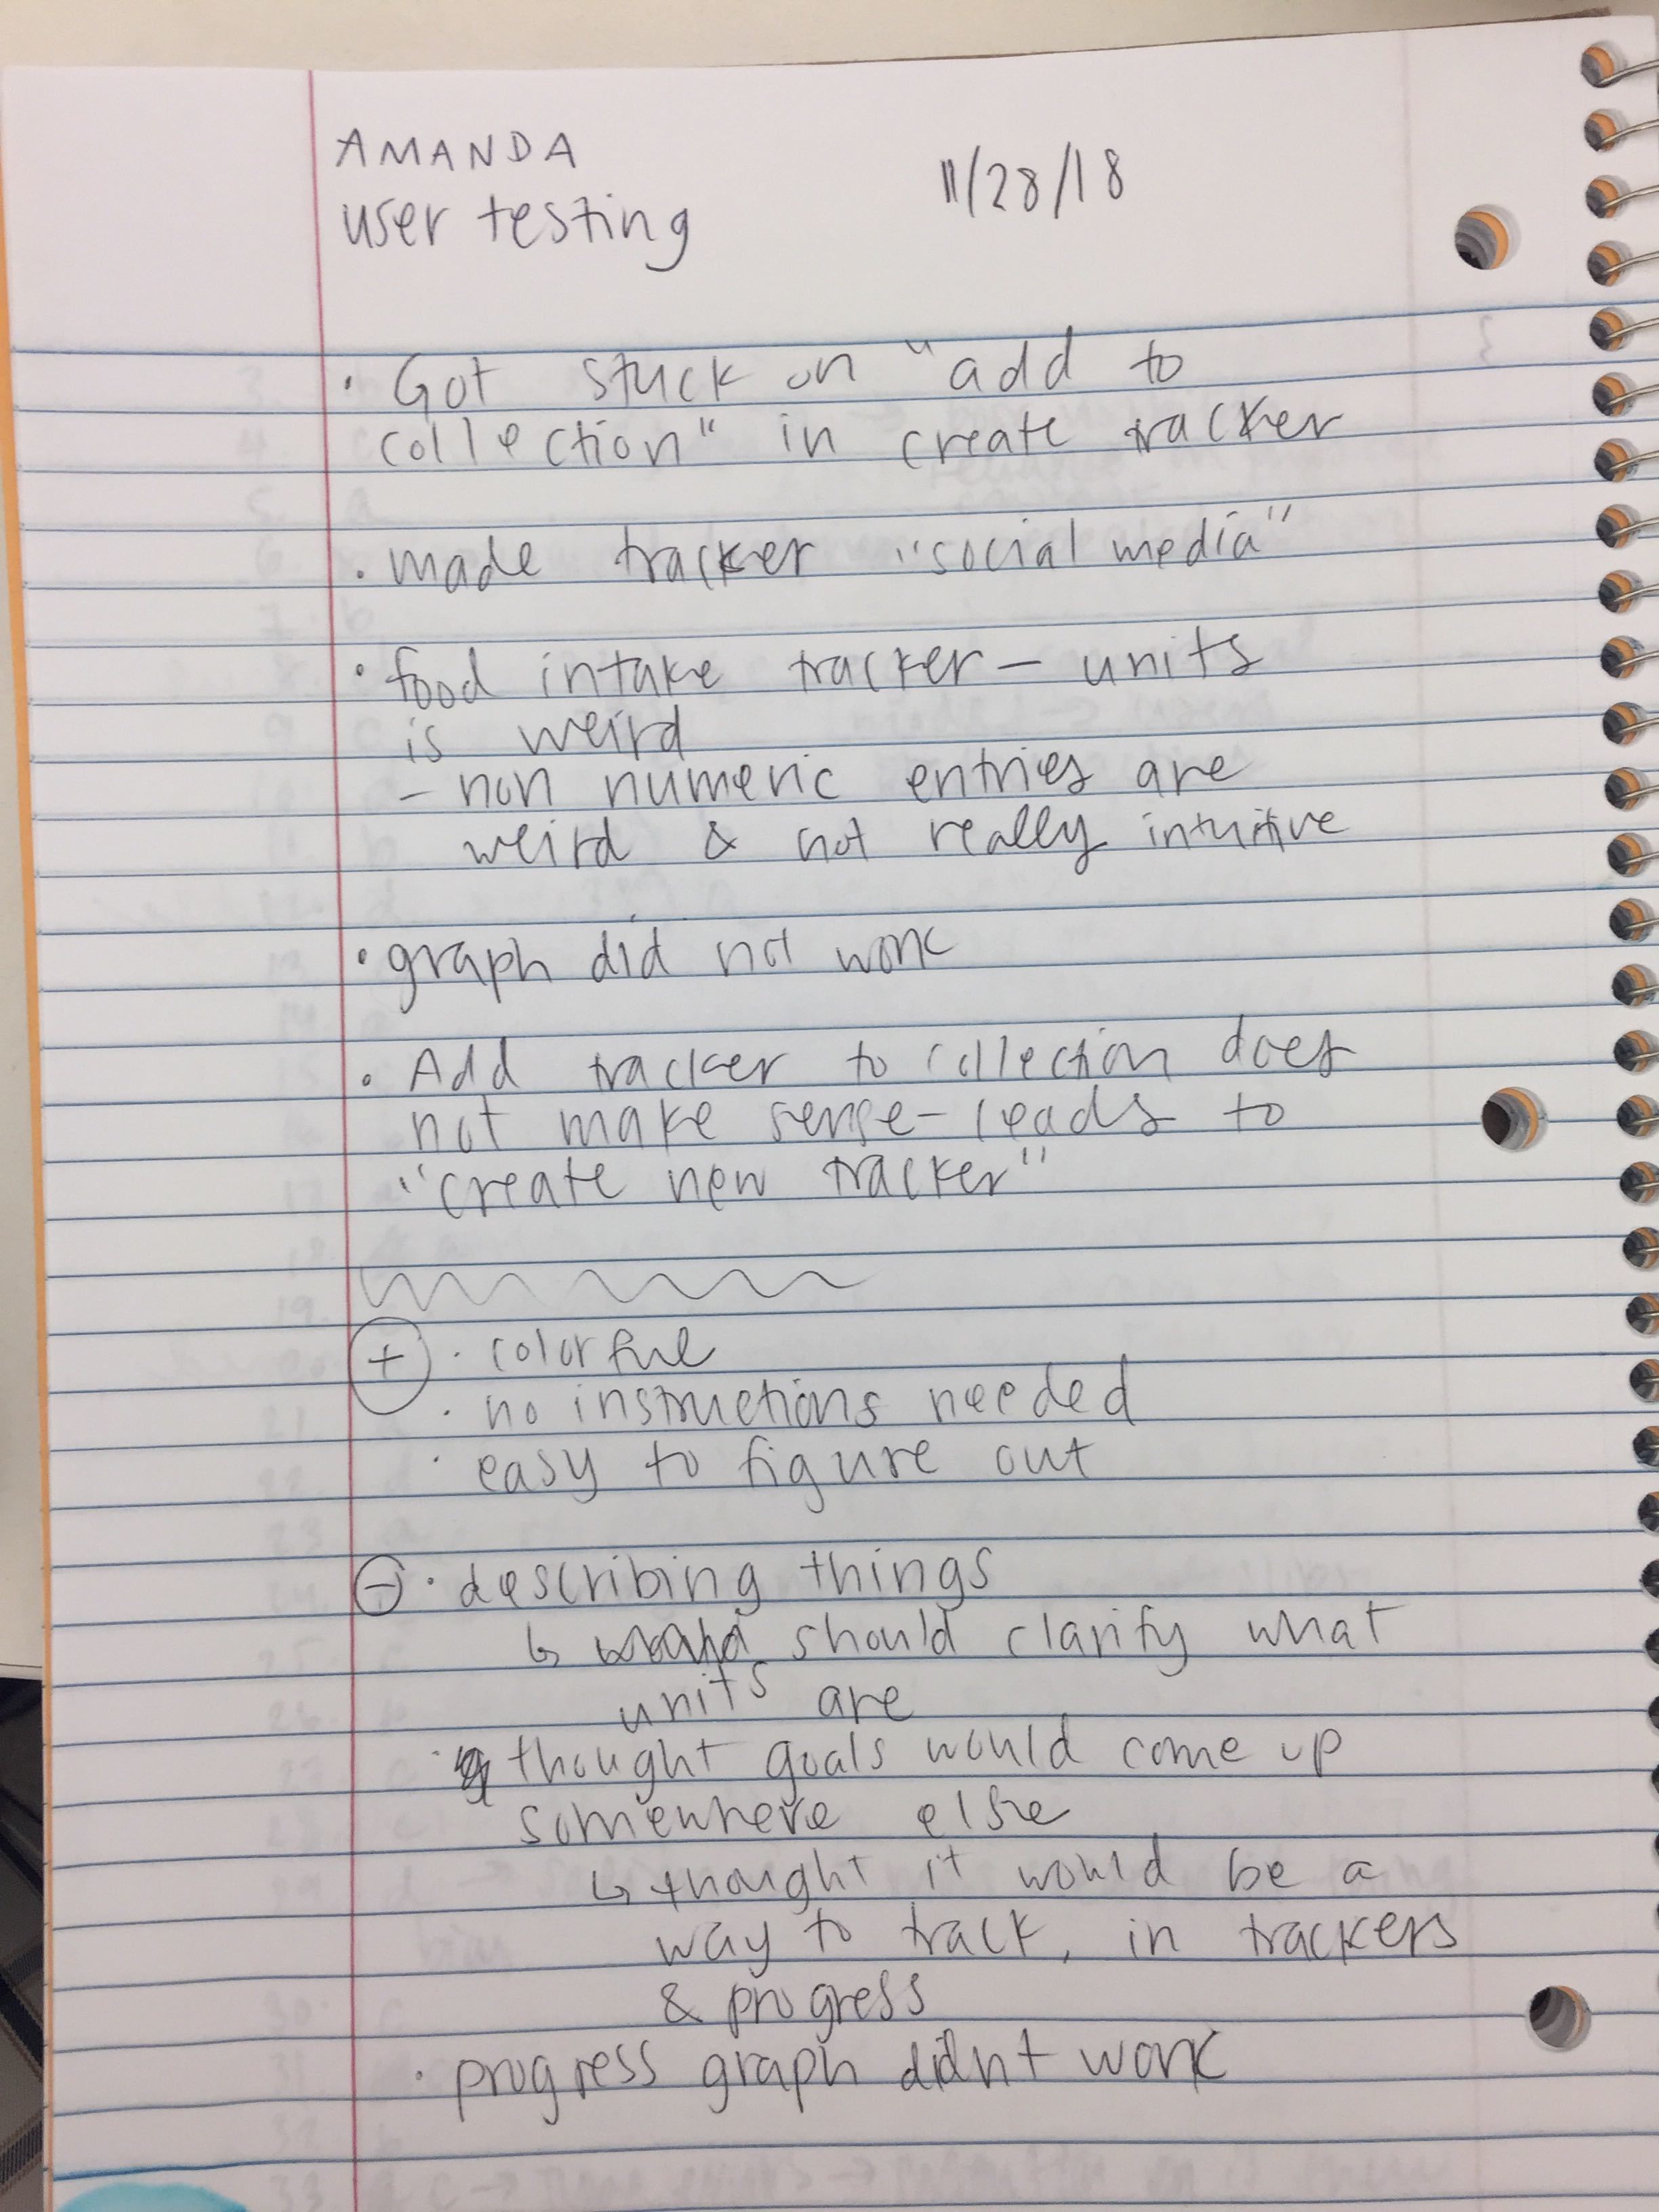 AMANDA
user testing
11/28/18
· Got stuck on "add to
collection" in create tracker
· made tracker "social media"
· food intake tracker - units
is weird
- non numeric entries are
weird & not really intuitive
· graph did not work
· Add tracker to collection does
not make sense - leads to
"create new tracker"
+ · colorful
· no instructions needed
· easy to figure out
- · describing things
↳ should clarify what
units are
· thought goals would come up
somewhere else
↳ thought it would be a
way to track, in trackers
& progress
· progress graph didnt work